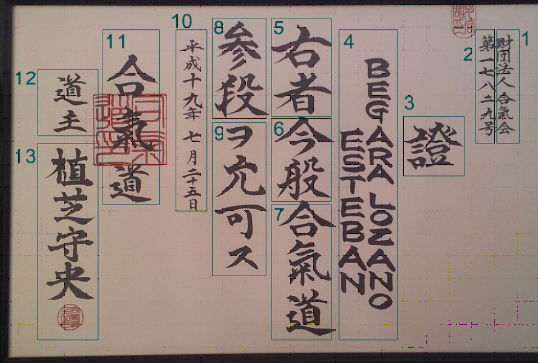 1
財団法人合氣会
2
第一七八二九号
3
證
4
BEGARA LOZANO
ESTEBAN
5
右者
6
今般
7
合氣道
8
参段
9
ヲ允可ス
10
平成十九年 七月二十五日
11
合氣道
12
道主
13
植芝守央